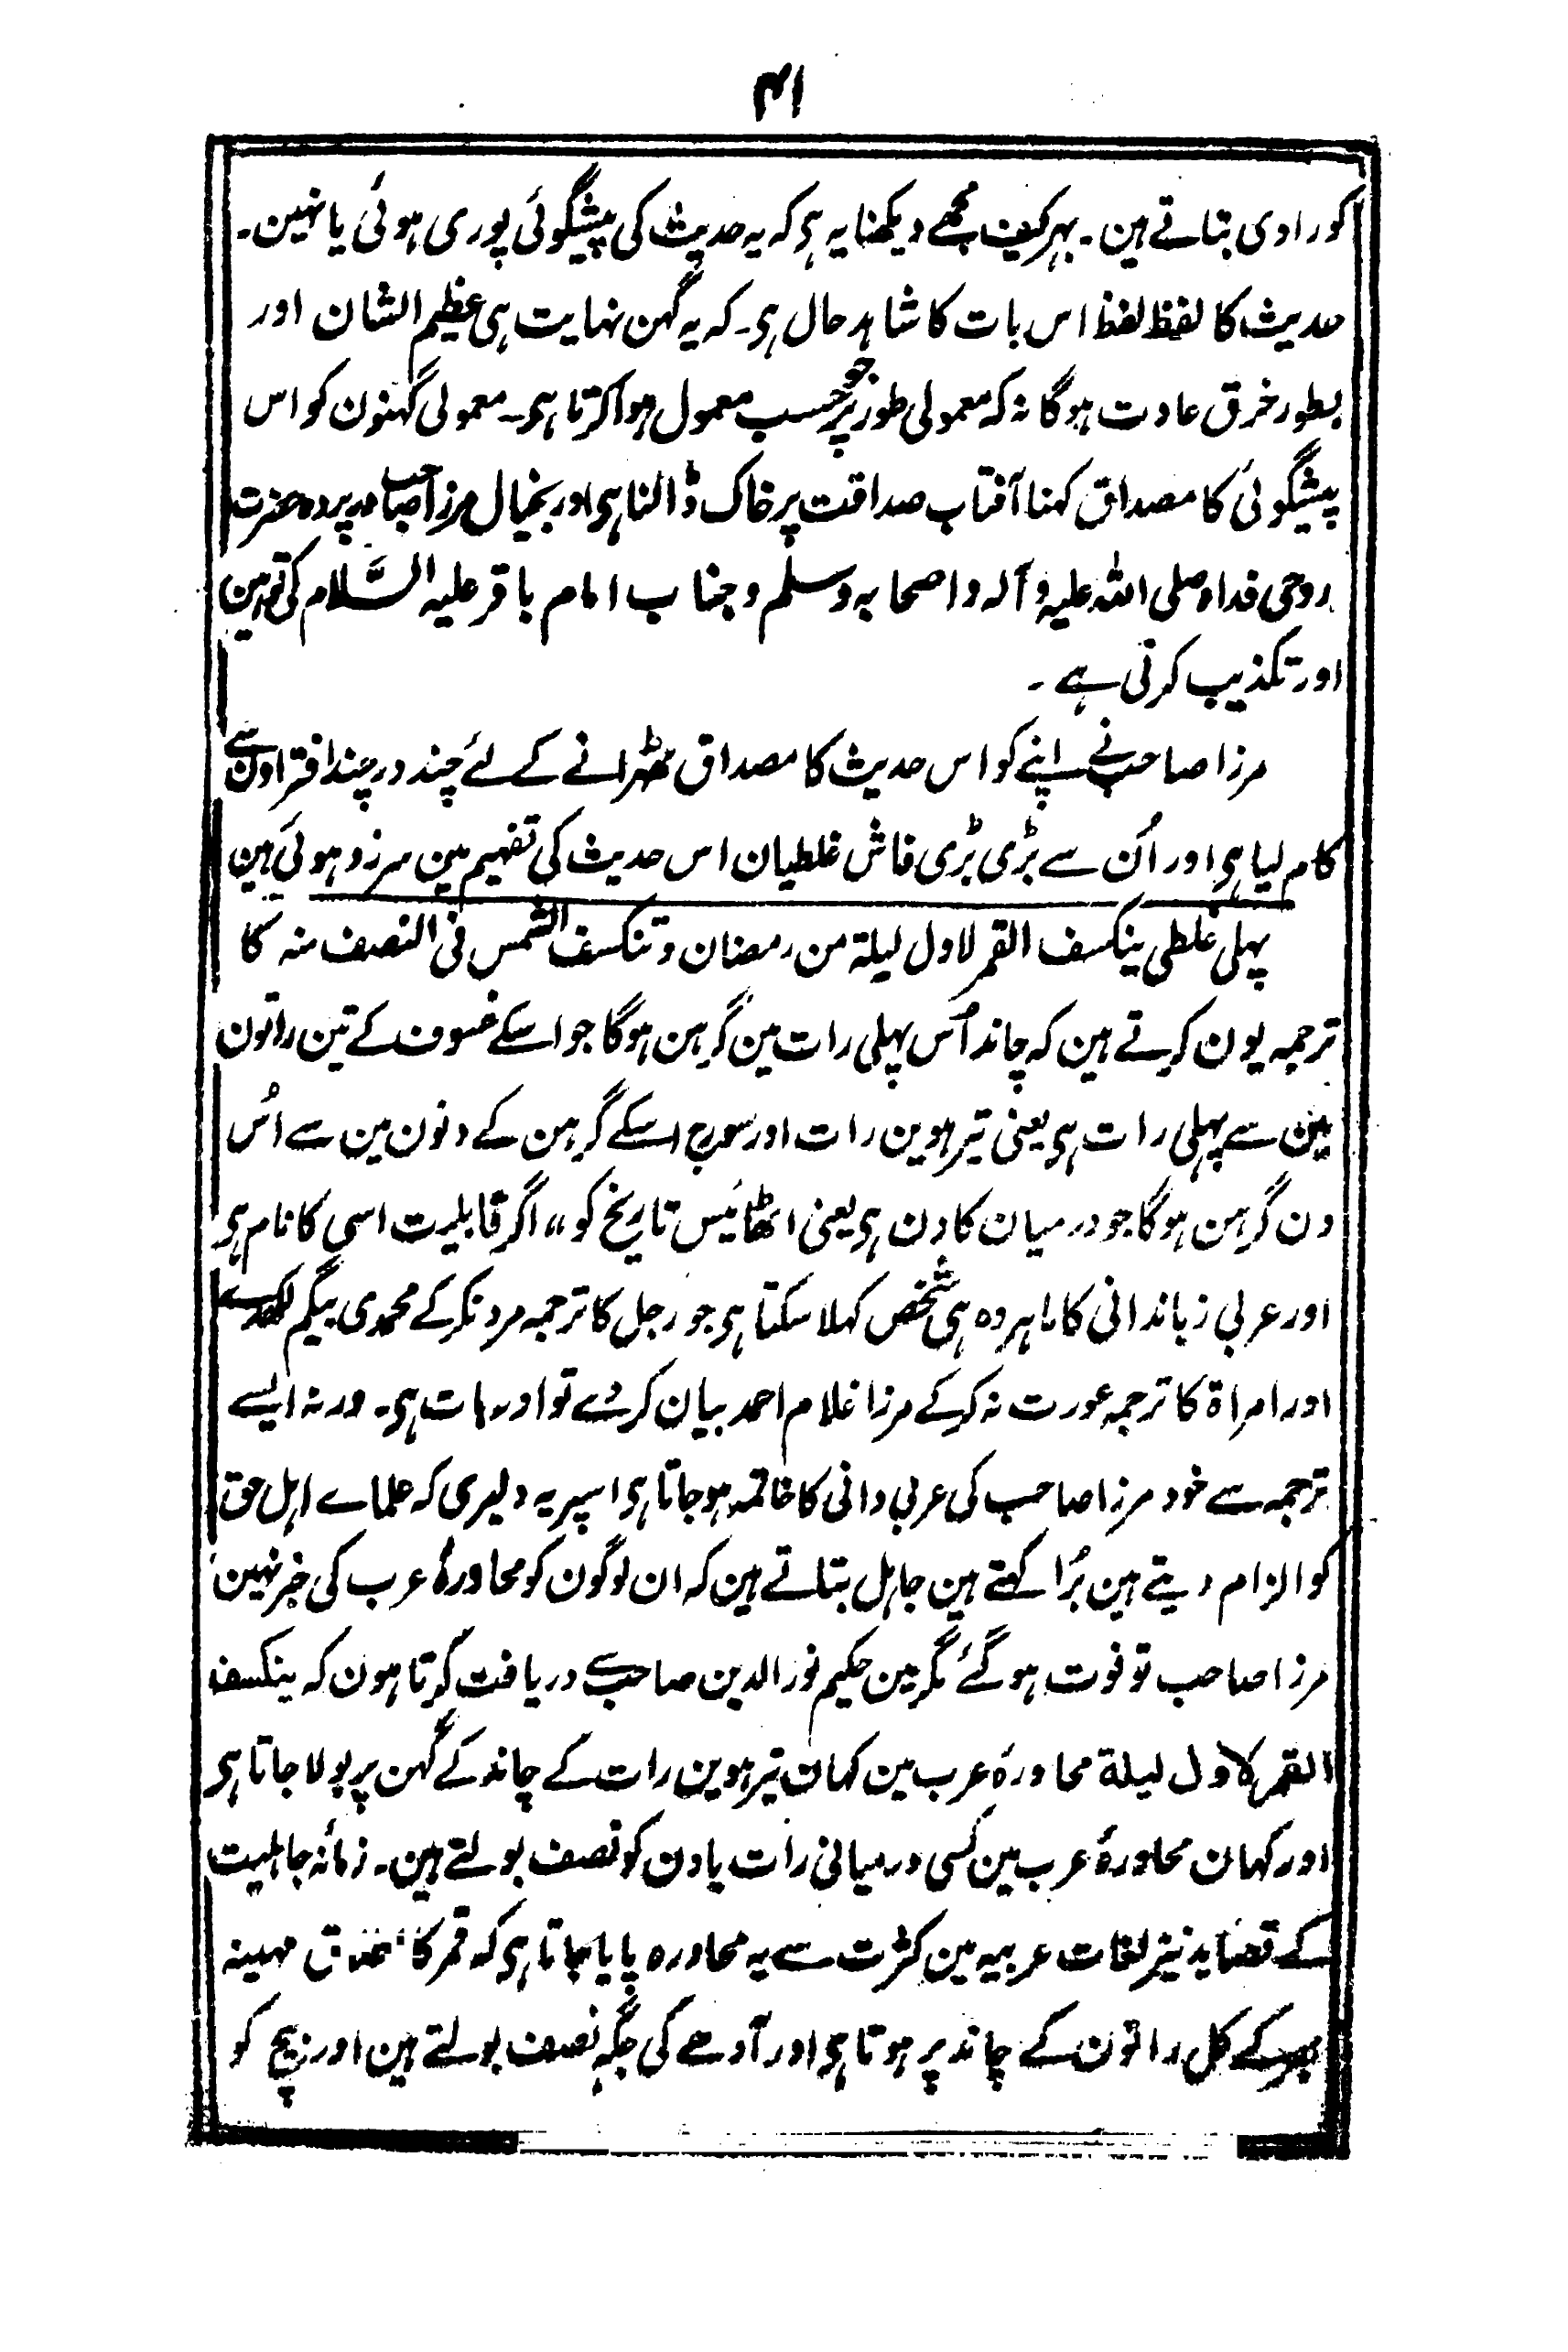 ۴۱
کو راوی بتاتے ہین۔ بہر کیف مجھے دیکھنا یہ ہی کہ یہ حدیث کی پیشگوئی پوری ہوئی یا نہین۔
حدیث کا لفظ لفظ اس بات کا شاہد حال ہی۔ کہ یہ گہن نہایت ہی عظیم الشان اور
بطور خرق عادت ہوگا نہ کہ معمولی طور پر جو حسب معمول ہوا کرتا ہی۔ معمولی گہنون کو اس
پیشگوئی کا مصداق کہنا آفتاب صداقت پر خاک ڈالنا ہی اور بخیال مرزا صاحب در پردہ حضرت
روحی فداہ صلی اللہ علیہ وآلہ واصحابہ وسلم وجناب امام باقر علیہ السَّلام کی توہین
اور تکذیب کرنی ہے ۔
مرزا صاحب نے اپنے کو اس حدیث کا مصداق ٹھہرانے کے لئے چند در چند افتراون سے
کام لیا ہی اور اُن سے بڑی بڑی فاش غلطیان اس حدیث کی تفہیم مین سرزد ہوئی ہین
پہلی غلطی ینکسف القمر لاول لیلة من رمضان وتنکسف الشمس فی النصف منہ کا
ترجمہ یون کرتے ہین کہ چاند اُس پہلی رات مین گرہن ہوگا جو اسکے خسوف کے تین راتون
مین سے پہلی رات ہی یعنی تیرہوین رات اور سورج اسکے گرہن کے دنون مین سے اُس
دن گرہن ہوگا جو درمیان کا دن ہی یعنی اٹھائیس تاریخ کو ،، اگر قابلیت اسی کا نام ہی
اور عربی زباندانی کا ماہر وہ ہی شخص کہلا سکتا ہی جو رجل کا ترجمہ مرد نکر کے محمدی بیگم لکھدے
اور امراة کا ترجمہ عورت نہ کر کے مرزا غلام احمد بیان کردے تو اور بات ہی۔ ورنہ ایسے
ترجمہ سے خود مرزا صاحب کی عربی دانی کا خاتمہ ہو جاتا ہی اسپر یہ دلیری کہ علماے اہل حق
کو الزام دیتے ہین بُرا کہتے ہین جاہل بتاتے ہین کہ ان لوگون کو محاورۂ عرب کی خبر نہین
مرزا صاحب تو فوت ہو گئے مگر مین حکیم نور الدین صاحب سے دریافت کرتا ہون کہ ینکسف
القمر لاول لیلة محاورہ عرب مین کہان تیرہوین رات کے چاند کے گہن پر بولا جاتا ہی
اور کہان محاورۂ عرب مین کسی درمیانی رات یا دن کو نصف بولتے ہین۔ زمانہ جاہلیت
کے قصاید نیز لغات عربیہ مین کثرت سے یہ محاورہ پایا جاتا ہی کہ قمر کا اطلاق مہینہ
بھر کے کل راتون کے چاند پر ہوتا ہی اور آدھے کی جگہ نصف بولتے ہین اور بیچ کو